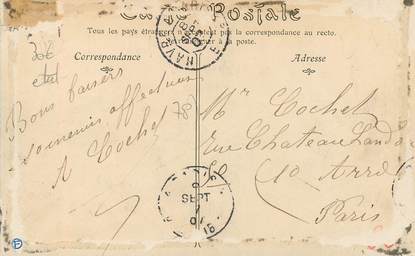 Carte Postale
Tous les pays étrangers n'acceptent pas la correspondance au recto.
à la poste.
Correspondance
Adresse
Bons baisers
souvenirs affectueux
A Cochet
78
Mr Cochet
rue Chateau Landon
10 Arrdt
Paris
HAVRE
SEPT